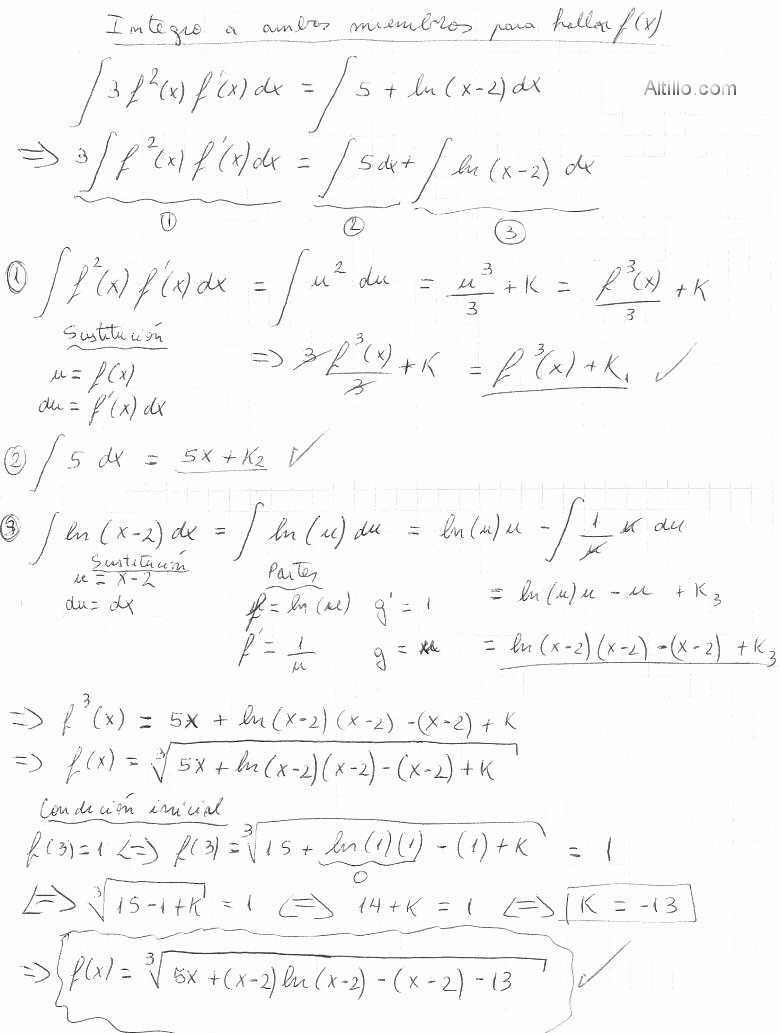 Integro a ambos miembros para hallar f(x)
∫ 3 f²(x) f'(x) dx = ∫ 5 + ln (x-2) dx
Altillo.com
=> 3 ∫ f²(x) f'(x) dx = ∫ 5 dx + ∫ ln (x-2) dx
① ② ③
① ∫ f²(x) f'(x) dx = ∫ u² du = u³/3 + K = f³(x)/3 + K
Sustitución
u = f(x)
du = f'(x) dx
=> 3 f³(x)/3 + K = f³(x) + K₁ ✓
② ∫ 5 dx = 5x + K₂ ✓
③ ∫ ln (x-2) dx = ∫ ln (u) du = ln(u) u - ∫ 1/u u du
Sustitución
u = x-2
du = dx
Partes
f = ln (u) g' = 1
f' = 1/u g = u
= ln(u) u - u + K₃
= ln(x-2)(x-2) - (x-2) + K₃
=> f³(x) = 5x + ln(x-2)(x-2) - (x-2) + K
=> f(x) = ³√5x + ln(x-2)(x-2) - (x-2) + K
Condición inicial
f(3) = 1 <=> f(3) = ³√15 + ln(1)(1) - (1) + K = 1
0
<=> ³√15-1+K = 1 <=> 14 + K = 1 <=> K = -13
=> f(x) = ³√5x + (x-2) ln(x-2) - (x-2) - 13 ✓